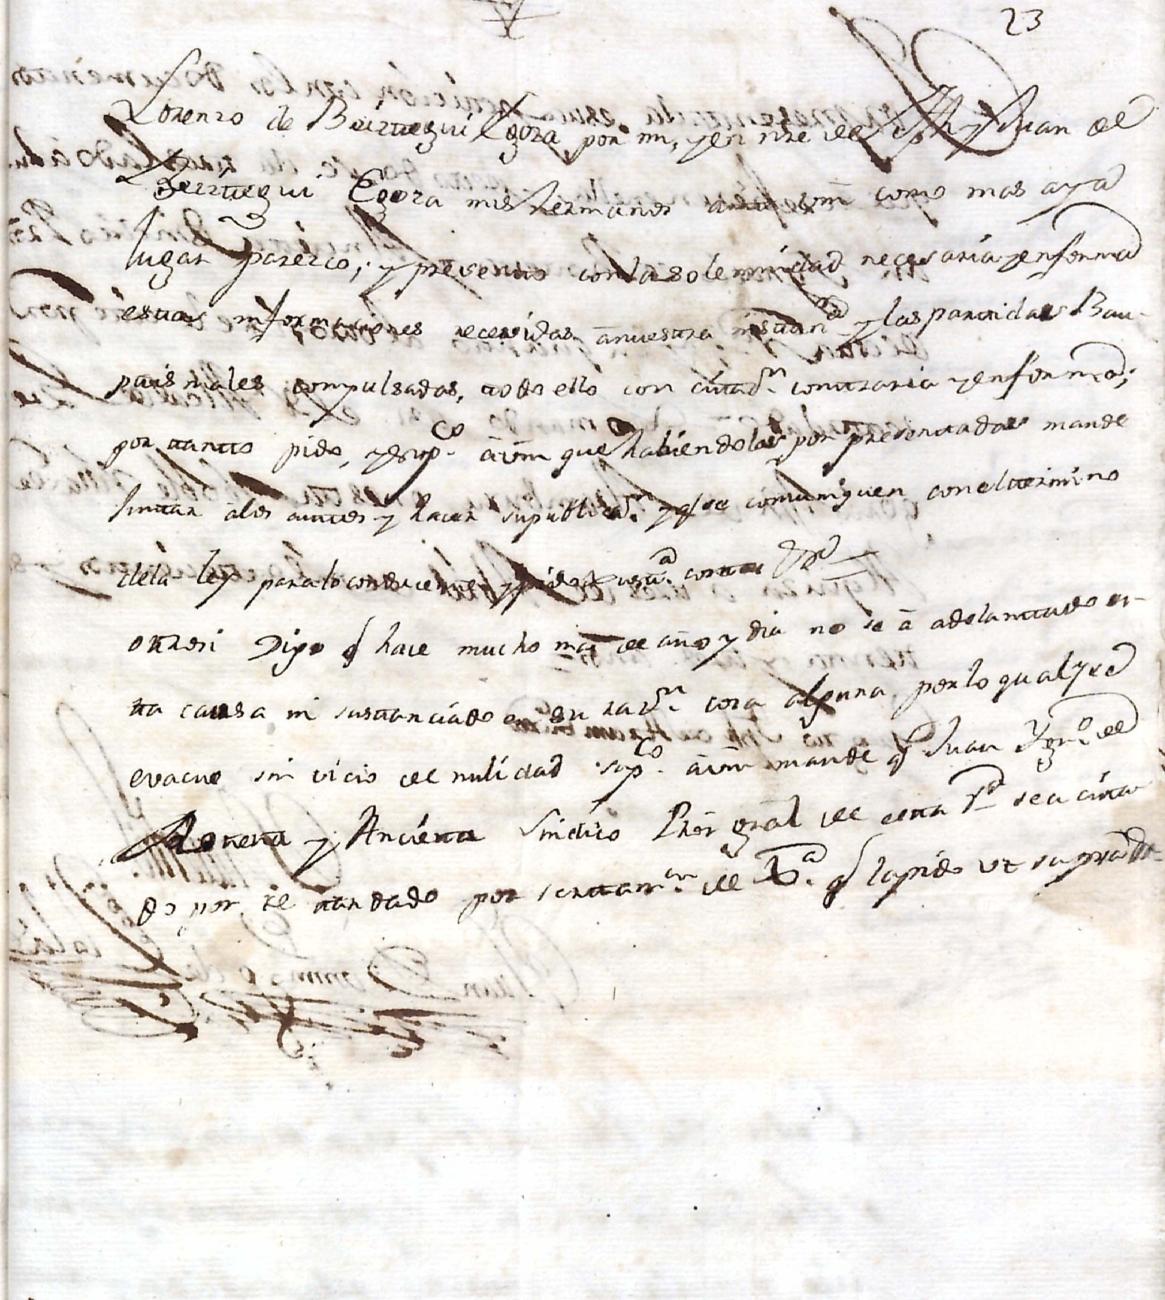 23
Lorenzo de Beiztegui Egoza por mi, y en nre de Jph y Juan de
Beiztegui Egoza mis hermanos ante vm como mas aya
lugar parezco; y presento con la solemnidad necesaria y en forma
estas informaciones recevidas a nuestra instanª y las partidas Bau-
ptismales compulsadas, todo ello con citazn contraria y en forma;
por tantto pido, y supco a vm que habiendolas por presentadas mande
juntar a los auttos y hacer su publicazn y q se comuniquen con el termino
de la ley para lo conducente y pido justª costas &ª
otrosi Digo q hace mucho mas de año y dia no se â adelantado es-
ta causa ni sustanciado en su razn cosa alguna por lo qual y se
evacue sin vicio de nulidad supco a vm mande q Juan Ygnº de
y Ancieta Sindico Prôr gral de esta Vª sea cita-
do por te tandado por ser ttam.te de Jª q la pido ut supra &